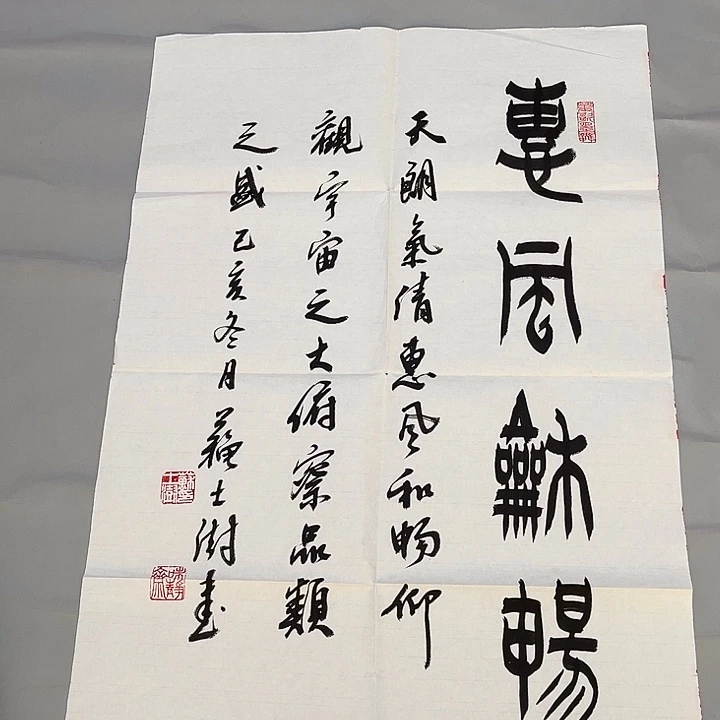 惠风龢暢
天朗氣清惠风和畅仰
觀宇宙之大俯察品類
之盛己亥冬月蘇士澍書